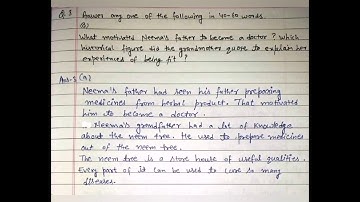 Q.3 Answer any one of the following in 40-60 words.
(a)
What motivated Neema's father to become a doctor? Which
historical figure did the grandmother quote to explain her
experiences of being fit?
Ans-3 (a)
Neema's father had seen his father preparing
medicines from herbal product. That motivated
him to become a doctor.
Neema's grandfather had a lot of knowledge
about the neem tree. He used to prepare medicines
out of the neem tree.
The neem tree is a store house of useful qualities.
Every part of it can be used to cure so many
illnesses.